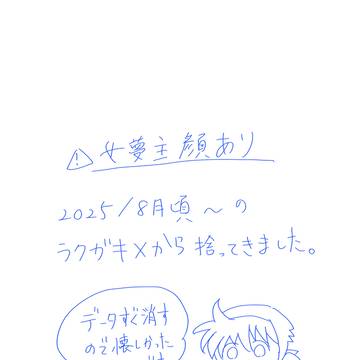 ⚠女夢主顔あり
2025/8月頃～の
ラクガキXから捨ってきました。
データすぐ消す
ので懐しかった